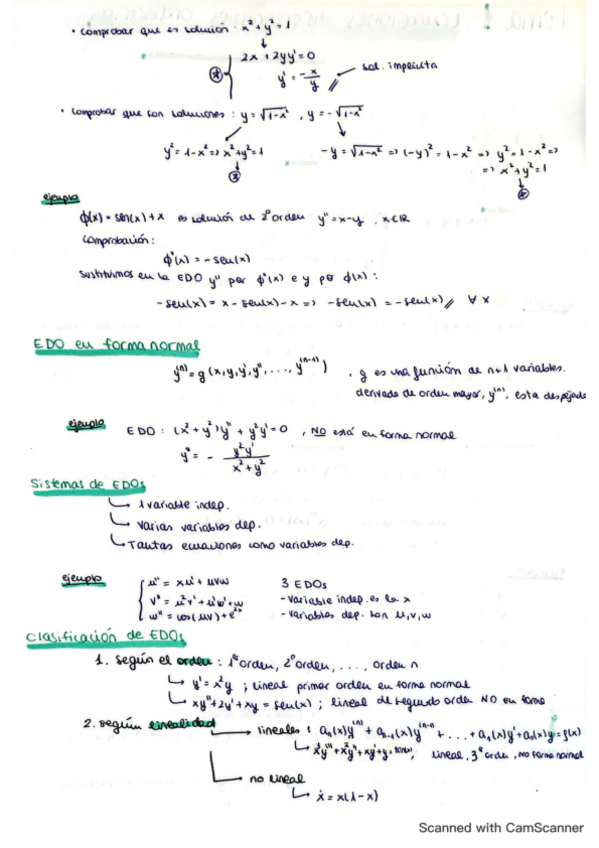 • comprobar que es solución : x²+y²=1
2x + 2yy'=0
y' = - x/y // sol. implícita
• comprobar que son soluciones : y = √1-x² , y = -√1-x²
y² = 1-x² => x²+y²=1 -y = √1-x² => (-y)² = 1-x² => y² = 1-x² =>
=> x²+y²=1
ejemplo
ϕ(x) = sen(x)+x es solución de 2º orden y''=x-y , x∈ℝ
comprobación:
ϕ''(x) = -sen(x)
sustituimos en la EDO y'' por ϕ''(x) e y por ϕ(x) :
-sen(x) = x - sen(x) - x => -sen(x) = -sen(x) // ∀ x
EDO en forma normal
y⁽ⁿ⁾ = g(x,y,y',y'', ..., y⁽ⁿ⁻¹⁾) , g es una función de n+1 variables.
derivada de orden mayor, y⁽ⁿ⁾, esta despejada
ejemplo
EDO : (x²+y²)y'' + y²y'=0 , NO está en forma normal
y'' = - y²y' / x²+y²
Sistemas de EDOs
1 variable indep.
varias variables dep.
Tantas ecuaciones como variables dep.
ejemplo
u'' = xu' + uvw 3 EDOs
v'' = u²v' + u'w' + w - variable indep. es la x
w'' = cos(uv)+e²ˣ - variables dep. son u,v,w
Clasificación de EDOs
1. según el orden : 1er orden, 2º orden, ..., orden n
y' = x²y ; lineal primer orden en forma normal
xy''+2y'+xy = sen(x) ; lineal de segundo orden NO en forma
2. según linealidad
lineales : aₙ(x)y⁽ⁿ⁾ + aₙ₋₁(x)y⁽ⁿ⁻¹⁾ + ... + a₁(x)y' + a₀(x)y = g(x)
lineal, 3er orden, No forma normal
no lineal
ẋ = x(1-x)
Scanned with CamScanner